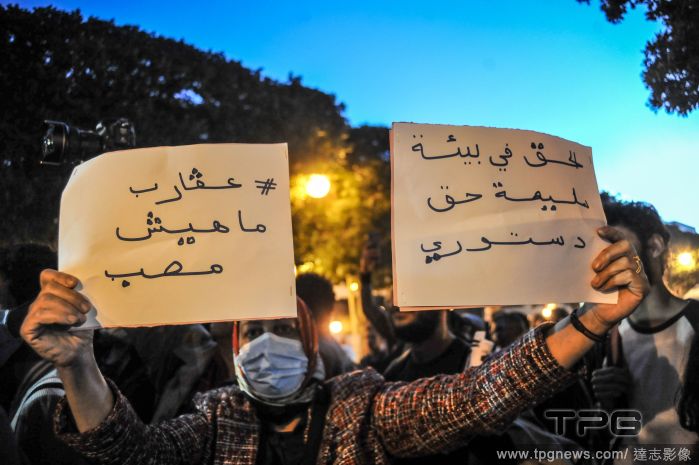 # عقارب
ماهيش
مصب
الحق في بيئة
سليمة حق
دستوري
TPG
www.tpgnews.com/ 達志影像